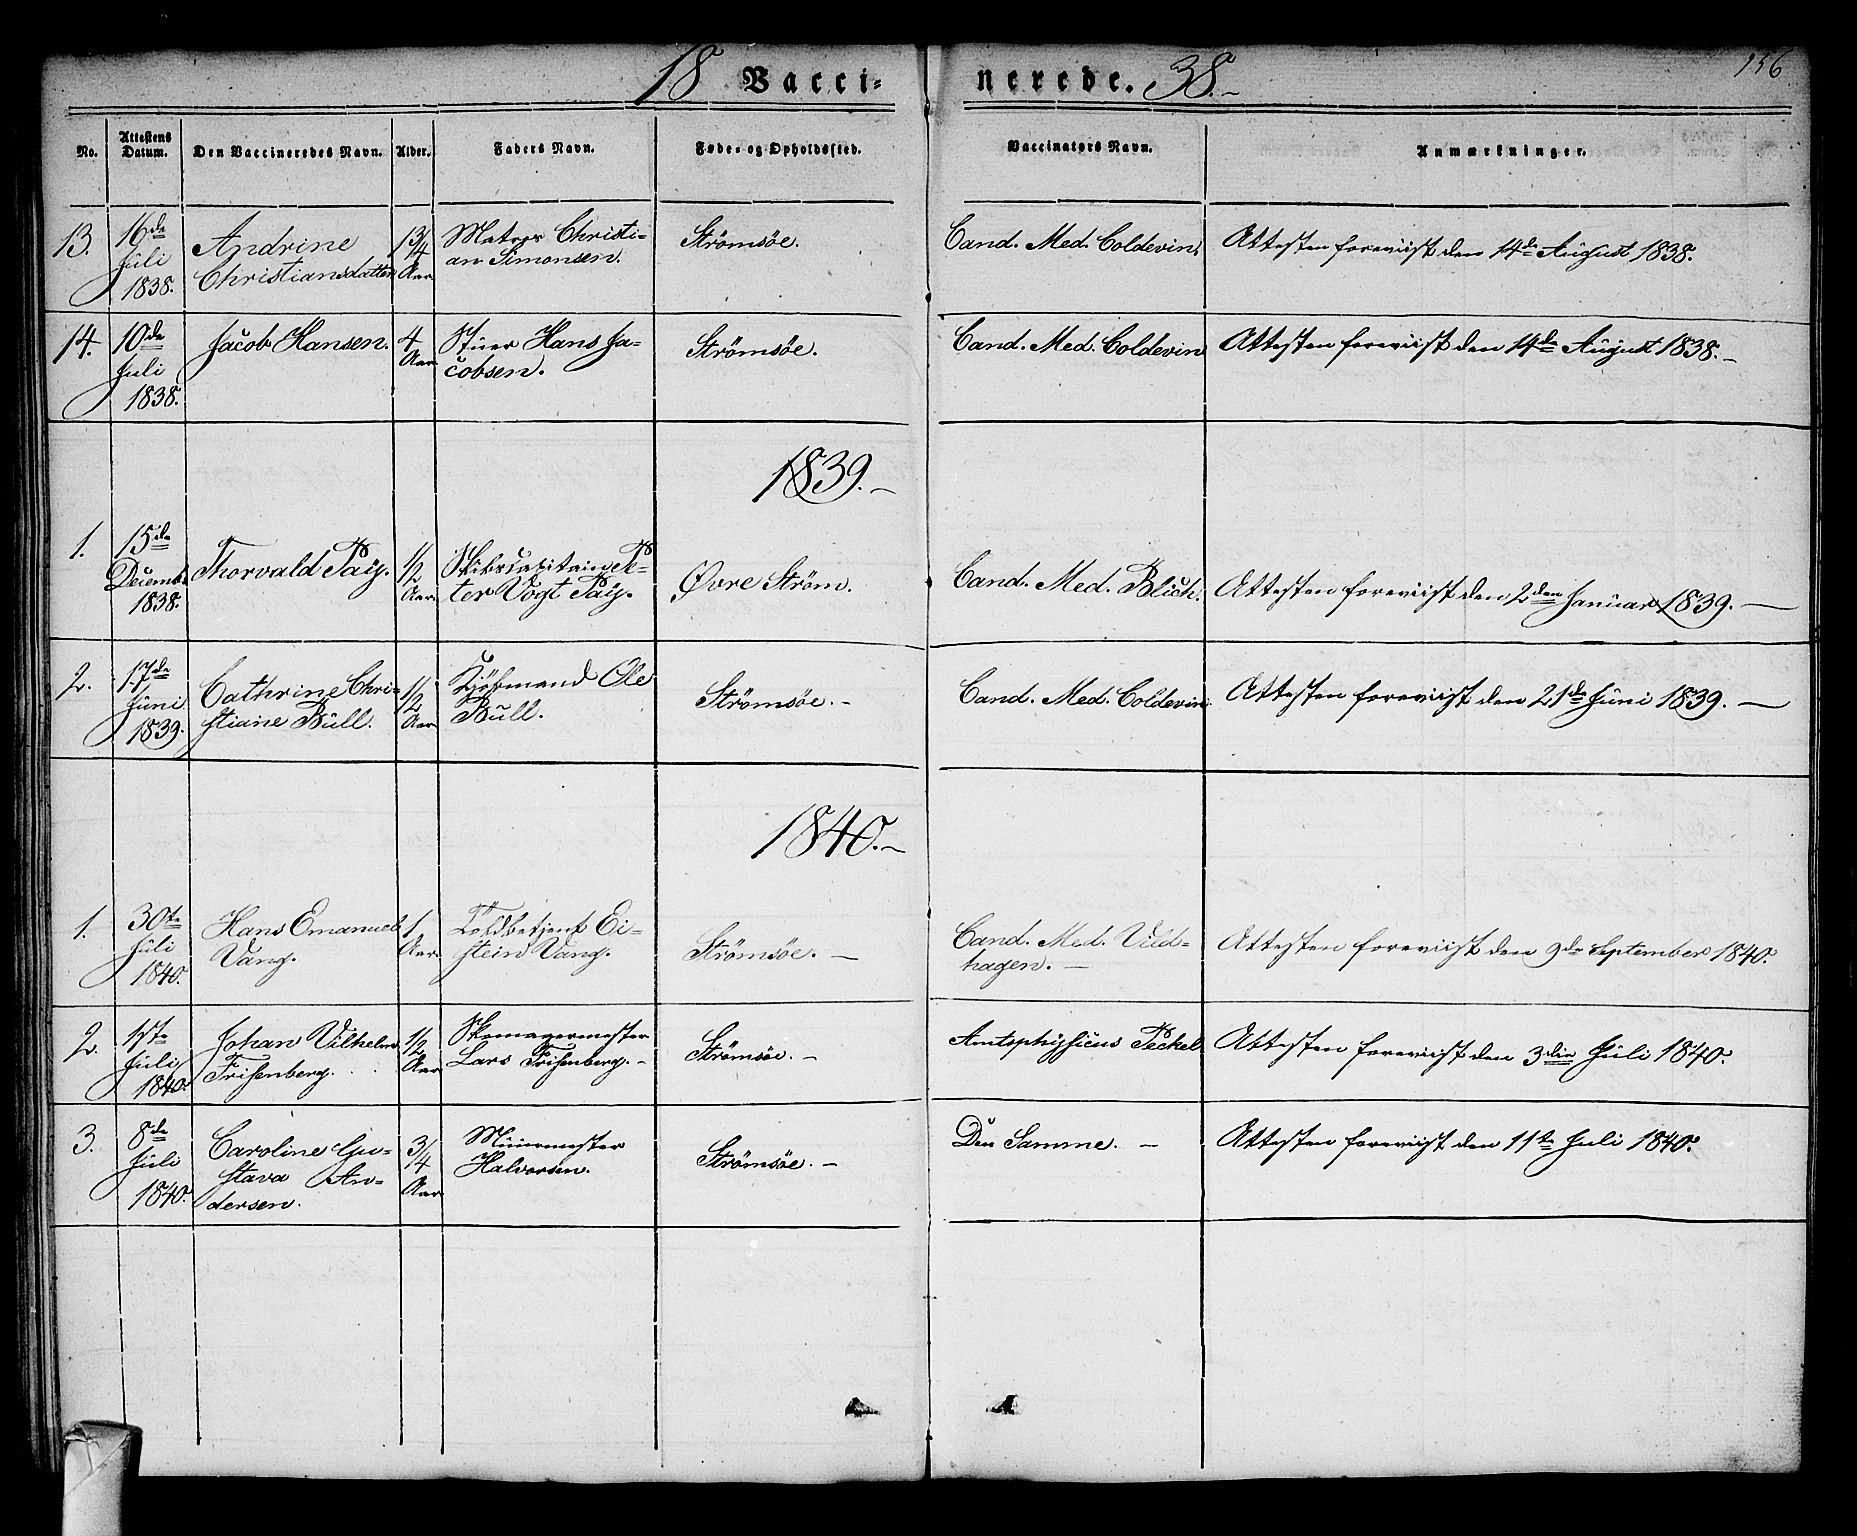 18 Vacci- nerede. 38.-
156
No. Attestens Datum. Den Vaccineredes Navn. Alder. Faders Navn. Føde- og Opholdssted. Vaccinatørs Navn. Anmærkninger.
13. 16de Juli 1838. Andrine Christiansdatter 1 3/4 Aar Matros Christi- an Simonsen. Strømsøe. Cand. Med. Coldevin. Attesten foreviist den 14de August 1838.
14. 10de Juli 1838. Jacob Hansen. 4 Aar Stuer Hans Ja- cobsen. Strømsøe. Cand. Med. Coldevin Attesten foreviist den 14de August 1838.-
1839.-
1. 15de Decemb. 1838. Thorvald Paÿ. 1/2 Aar. Skibscapitain Pe- ter Vogt Paÿ. Øvre Strøm. Cand. Med. Blich. Attesten foreviist den 2den Januar 1839. -
2. 17de Juni 1839. Cathrine Chri- stiane Bull. 1/2 Aar Kjøbmand Ole Bull. Strømsøe. - Cand. Med. Coldevin. Attesten foreviist den 21de Juni 1839. -
1840.-
1. 30te Juli 1840. Hans Emanuel Vang. 1 Aar. Toldbetjent Ei- stein Vang. Strømsøe. - Cand. Med. Vild- hagen. - Attesten foreviist den 9de September 1840.
2. 1ste Juli 1840. Johan Vilhelm Frisenberg. 1/2 Aar Skomagermester Lars Frisenberg. - Strømsøe. - Amtsphÿsicus Peckel Attesten foreviist den 3die Juli 1840.
3. 8de Juli 1840. Caroline Gu- stava An- dersen. 3/4 Aar Muurmester Halvorsen. Strømsøe. - Den Samme. - Attesten foreviist den 11te Juli 1840.